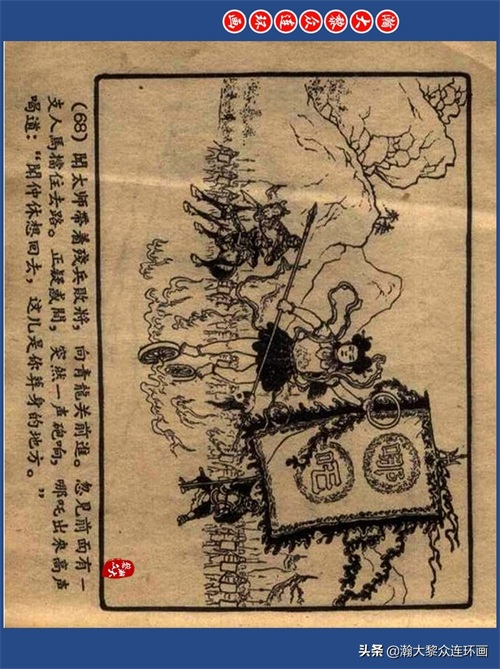 瀚大黎众连环画
(68) 聞太师帶着殘兵敗將，向青龍关前進。忽見前面有一
支人馬擋住去路。正疑惑間，突然一声砲响，哪吒出來高声
喝道：“聞仲休想回去，这儿是你葬身的地方。”
哪吒
头条 @瀚大黎众连环画